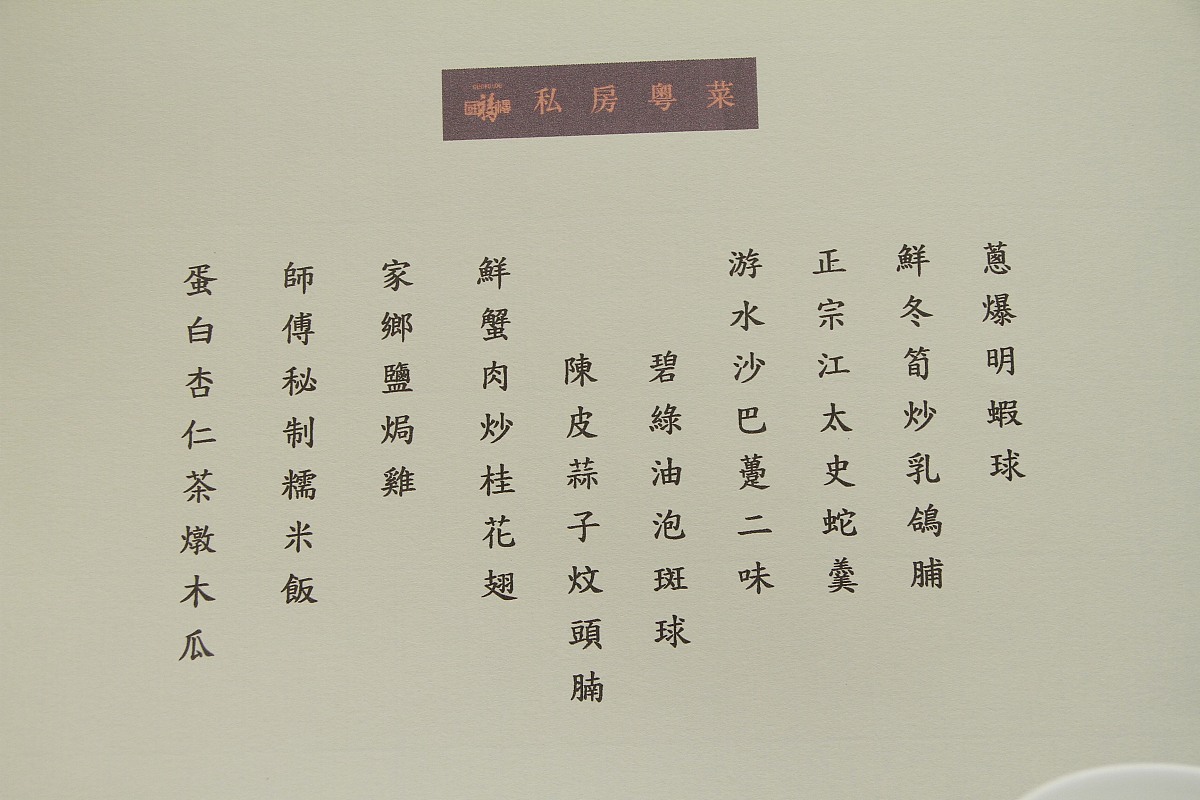 私房粵菜
蔥爆明蝦球
鮮冬筍炒乳鴿脯
正宗江太史蛇羹
游水沙巴躉二味
碧綠油泡斑球
陳皮蒜子炆頭腩
鮮蟹肉炒桂花翅
家鄉鹽焗雞
師傅秘制糯米飯
蛋白杏仁茶燉木瓜